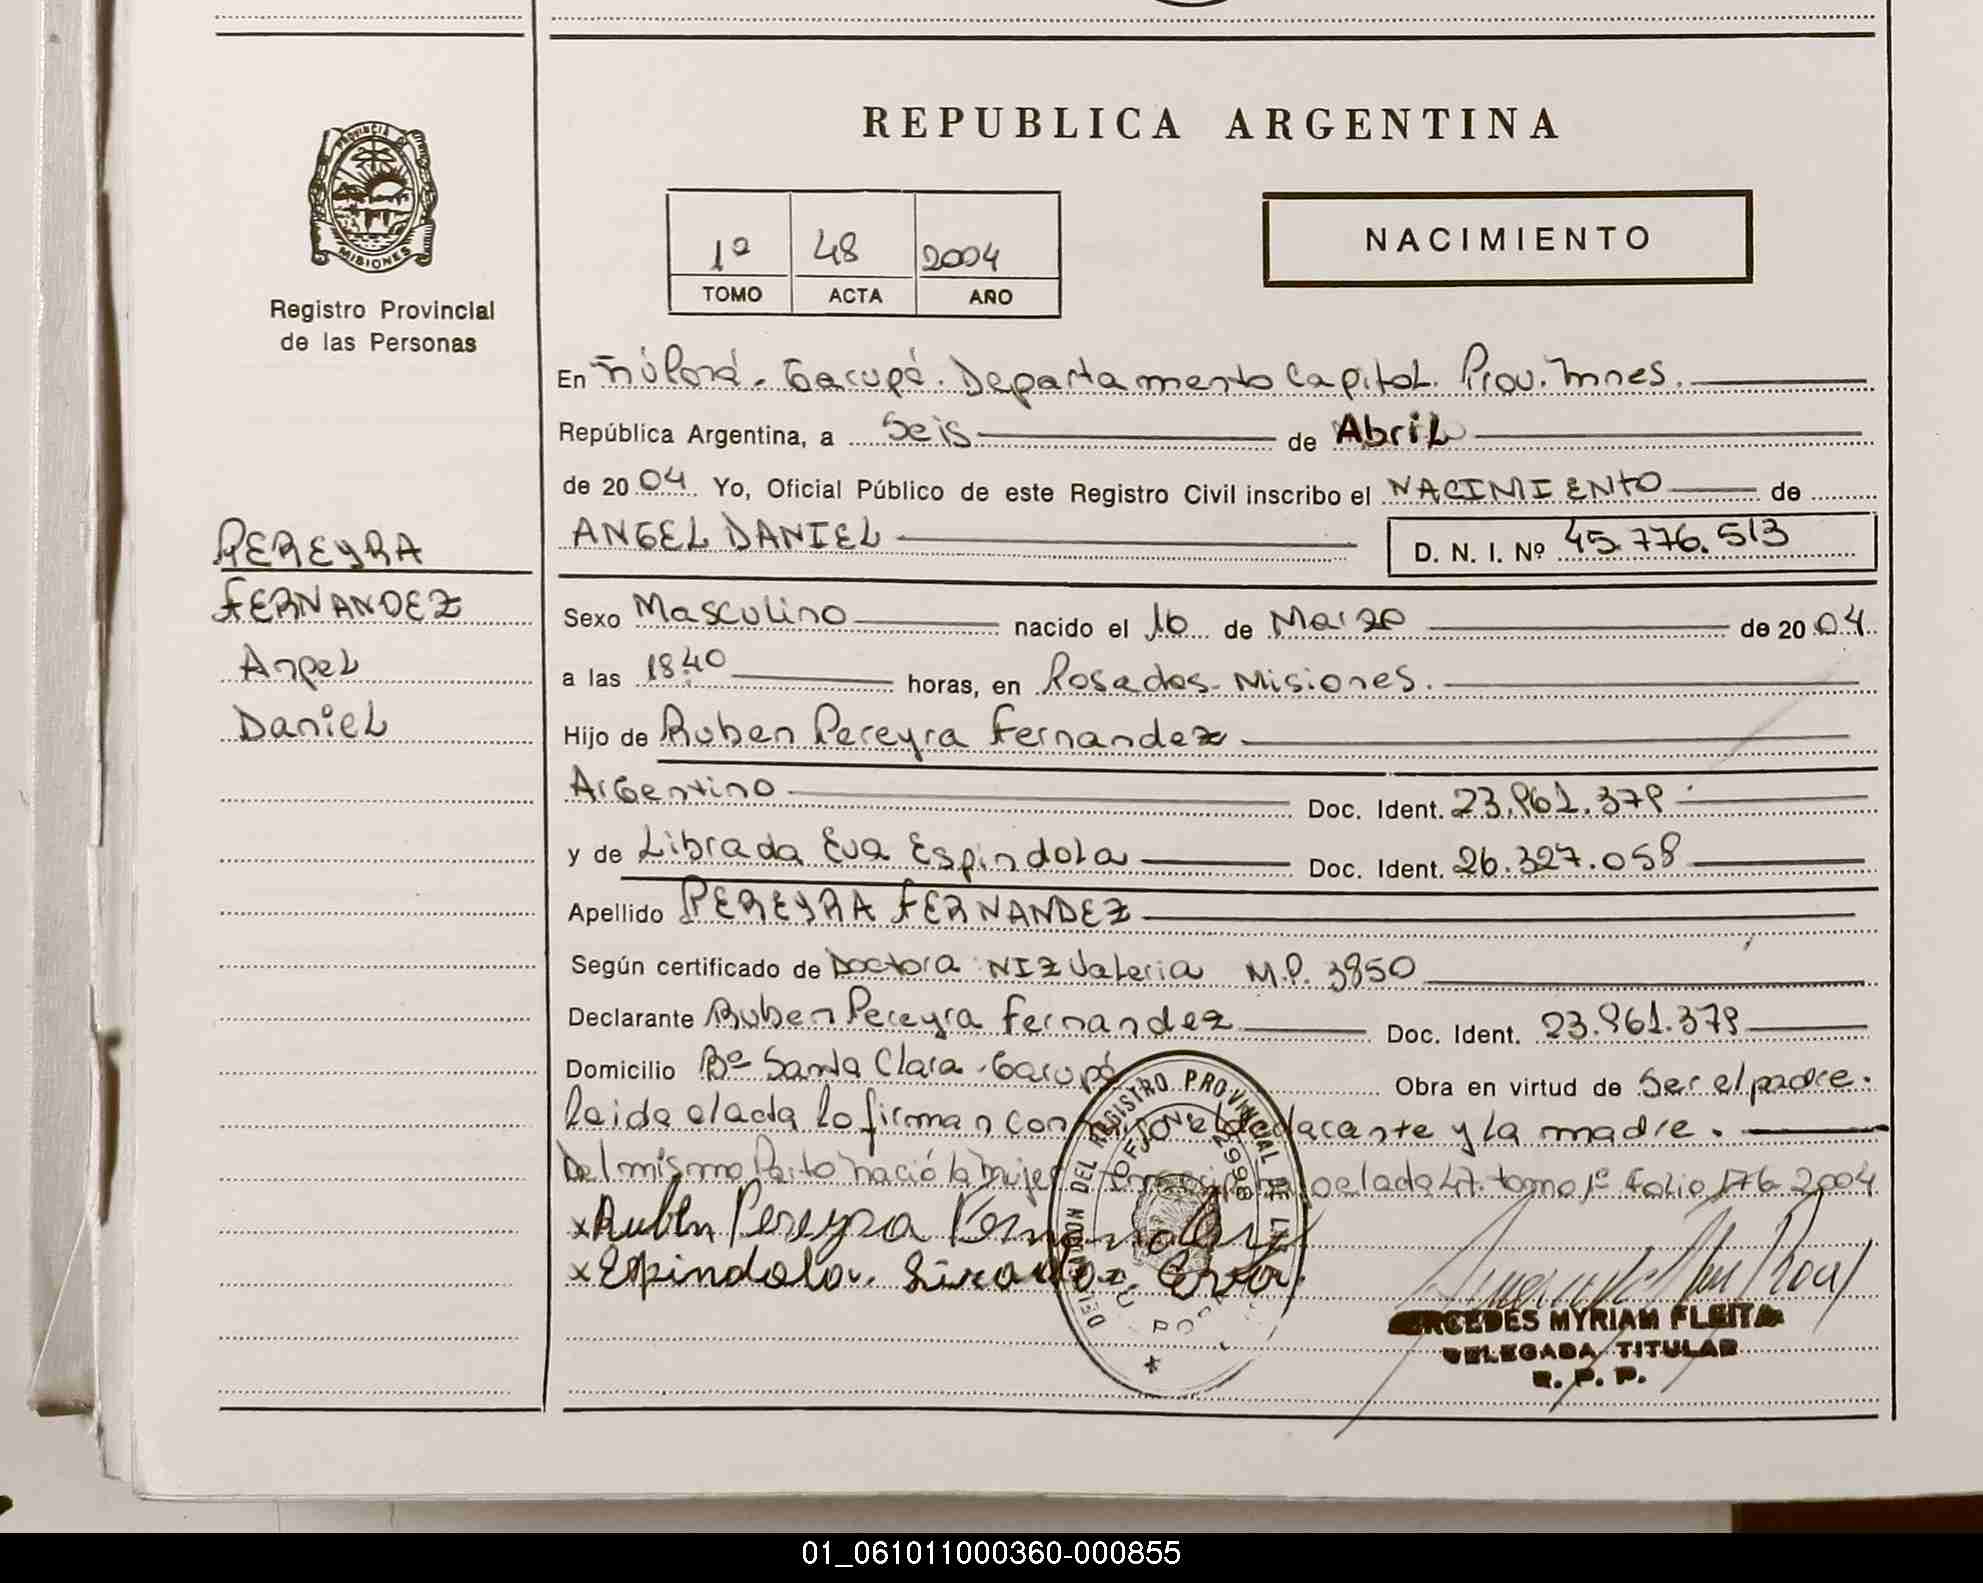 REPUBLICA ARGENTINA
PROVINCIA DE MISIONES
Registro Provincial
de las Personas
1º 48 2004
TOMO ACTA AÑO
NACIMIENTO
En Ñú Porá. Garupá. Departamento Capital. Prov. Mnes.
República Argentina, a Seis de Abril
de 2004 Yo, Oficial Público de este Registro Civil inscribo el NACIMIENTO de
ANGEL DANIEL D. N. I. Nº 45.776.513
PEREYRA
FERNANDEZ
Angel
Daniel
Sexo Masculino nacido el 16 de Marzo de 2004
a las 18:40 horas, en Posadas. Misiones.
Hijo de Ruben Pereyra Fernandez
Argentino Doc. Ident. 23.961.379
y de Librada Eva Espindola Doc. Ident. 26.327.058
Apellido PEREYRA FERNANDEZ
Según certificado de Doctora NIZ Valeria M.P. 3850
Declarante Ruben Pereyra Fernandez Doc. Ident. 23.961.379
Domicilio Bº Santa Clara. Garupá Obra en virtud de Ser el padre.
Leida el acta lo firman con el declarante y la madre.
Del mismo Parto nació la mujer acta 47. tomo 1º Folio 176 2004
x Ruben Pereyra Fernandez
x Espindola. Librada. Eva.
DELEGACION DEL REGISTRO PROVINCIAL DE LAS
MERCEDES MYRIAM FLEITA
DELEGADA TITULAR
R. P. P.
01_061011000360-000855